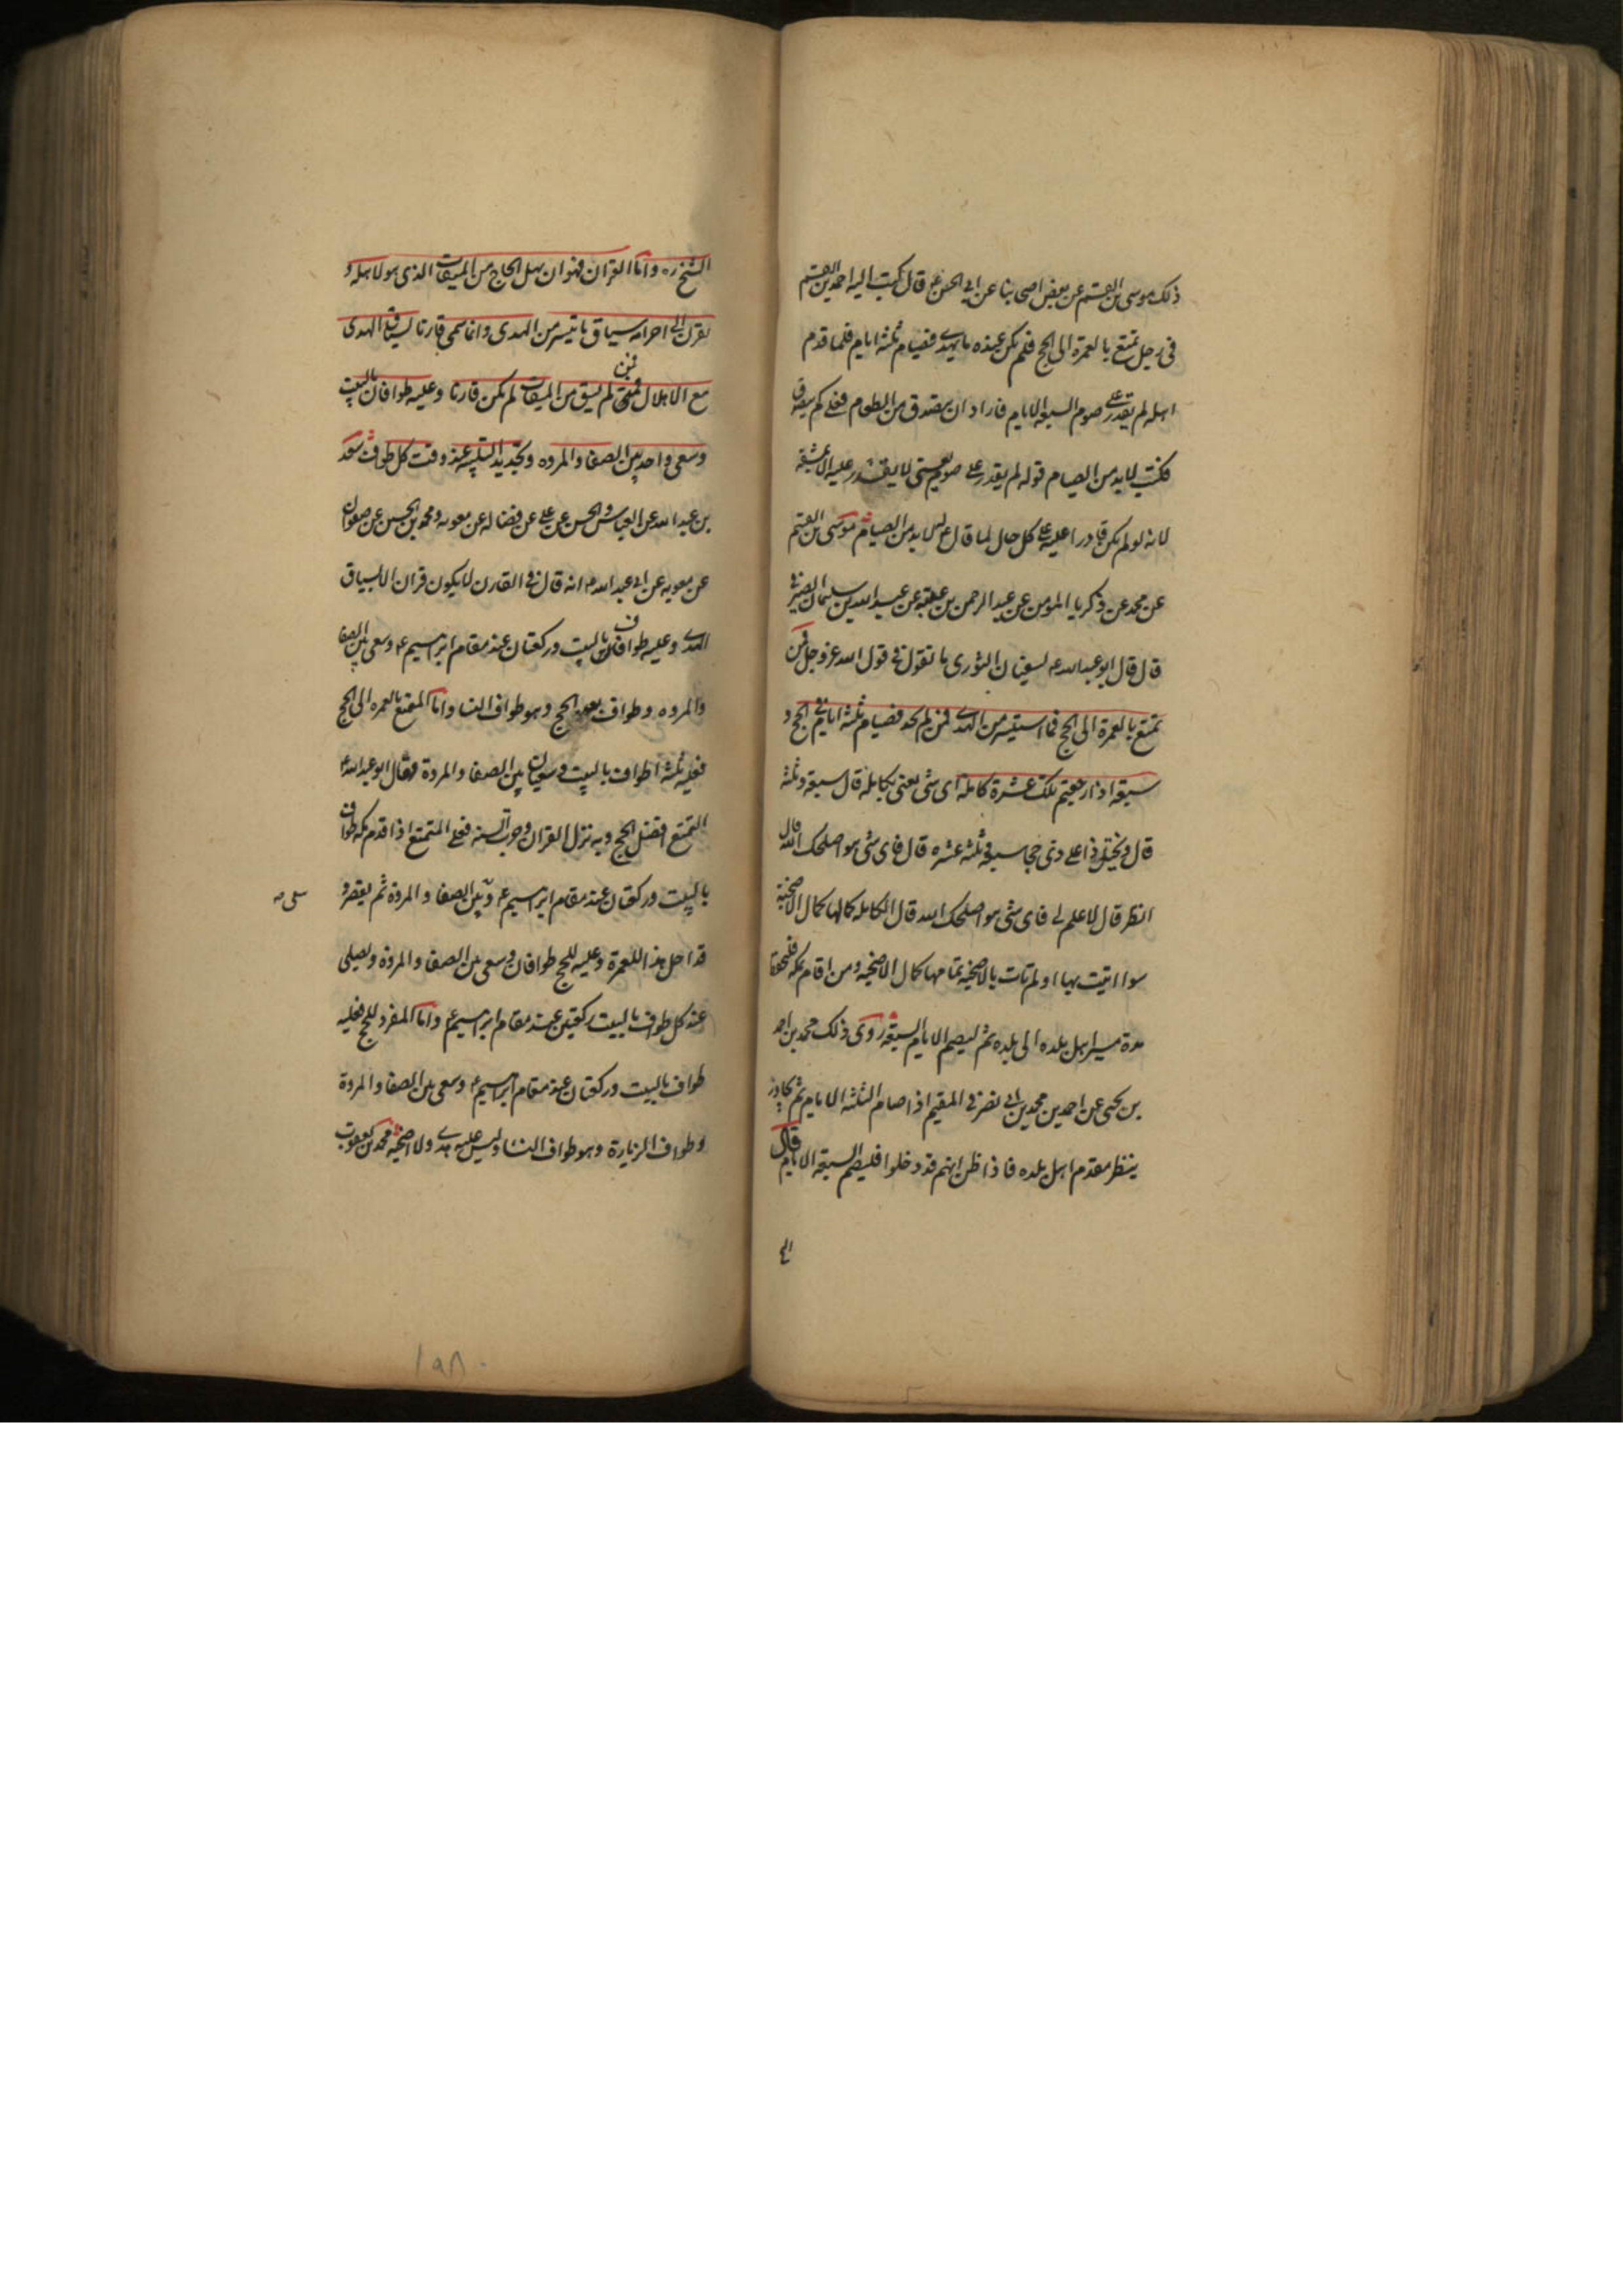 ذلك موسى بن القسم عن بعض اصحابنا عن ابى الحسن ع قال كتبت اليه احمد بن القسم
فى رجل تمتع بالعمرة الى الحج فلم يكن عنده ما يهدى فصيام ثلثة ايام فلما قدم
اهله لم يقدر على صوم السبعة الايام فاراد ان يتصدق من الطعام فعلى كم يتصدق
فكتب لابد من الصيام قوله لم يقدر على صوم يعنى لا يقدر عليه الا بمشقة
لانه لو لم يكن قادرا عليه على كل حال لما قال ع لابد من الصيام موسى بن القسم
عن محمد عن زكريا المؤمن عن عبد الرحمن بن عتبة عن عبد الله بن سليمان الصيرفى
قال قال ابو عبد الله ع لسفيان الثورى ما تقول فى قول الله عز وجل فمن
تمتع بالعمرة الى الحج فما استيسر من الهدى فمن لم يجد فصيام ثلثة ايام فى الحج و
سبعة اذا رجعتم تلك عشرة كاملة اى شى يعنى بكاملة قال سبعة وثلثة
قال ويختل ذا على ذى حجا سبعة وثلثة عشرة قال فاى شى هو اصلحك الله قال
انظر قال لا علم لى فاى شى هو اصلحك الله قال الكاملة كمالها كمال الاضحية
سوا اتيت بها او لم تات بالاضحية تمامها كمال الاضحية ومن اقام بمكة فلينتظر
مدة مسير اهل بلده الى بلده ثم ليصم الايام السبعة روى ذلك محمد بن احمد
بن يحيى عن احمد بن محمد بن ابى نصر فى المقيم اذا صام الثلثة الايام ثم يجاور
ينظر مقدم اهل بلده فاذا ظن انهم قد دخلوا فليصم السبعة الايام قال
الشيخ ره واما القران فهو ان يهل الحاج من الميقات الذى هو لاهله و
يقرن الى احرامه سياق ما تيسر من الهدى وانما سمى قارنا لسياق الهدى
مع الاهلال فمن لم يسق من الميقات لم يكن قارنا وعليه طوافان بالبيت
وسعى واحد بين الصفا والمروه وتجديد التلبية عند وقت كل طواف سعد
بن عبد الله عن العباس والحسن عن على عن فضاله عن معويه ومحمد بن الحسين عن صفوان
عن معويه عن ابى عبد الله ع انه قال فى القارن لا يكون قران الا بسياق
الهدى وعليه طوافان بالبيت وركعتان عند مقام ابرهيم ع وسعى بين الصفا
والمروه وطواف بعد الحج وهو طواف النسا واما المتمتع بالعمره الى الحج
فعليه ثلثة اطواف بالبيت وسعيان بين الصفا والمروة وقال ابو عبد الله ع
التمتع افضل الحج وبه نزل القران وجرت السنة فعلى المتمتع اذا قدم مكة طواف
بالبيت وركعتان عند مقام ابرهيم ع وبين الصفا والمروة ثم يقصر و
قد احل هذا للعمرة وعليه للحج طوافان وسعى بين الصفا والمروة ويصلى
عند كل طواف بالبيت ركعتين عند مقام ابرهيم ع واما المفرد للحج فعليه
طواف بالبيت وركعتان عند مقام ابرهيم ع وسعى بين الصفا والمروة
وطواف الزيارة وهو طواف النسا وليس عليه هدى ولا اضحية محمد بن يعقوب
١٩٨